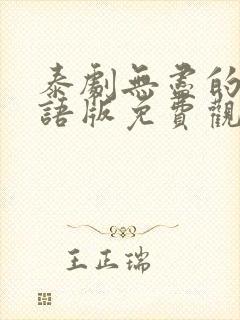 泰劇無盡的
語版免費觀
王正瑞